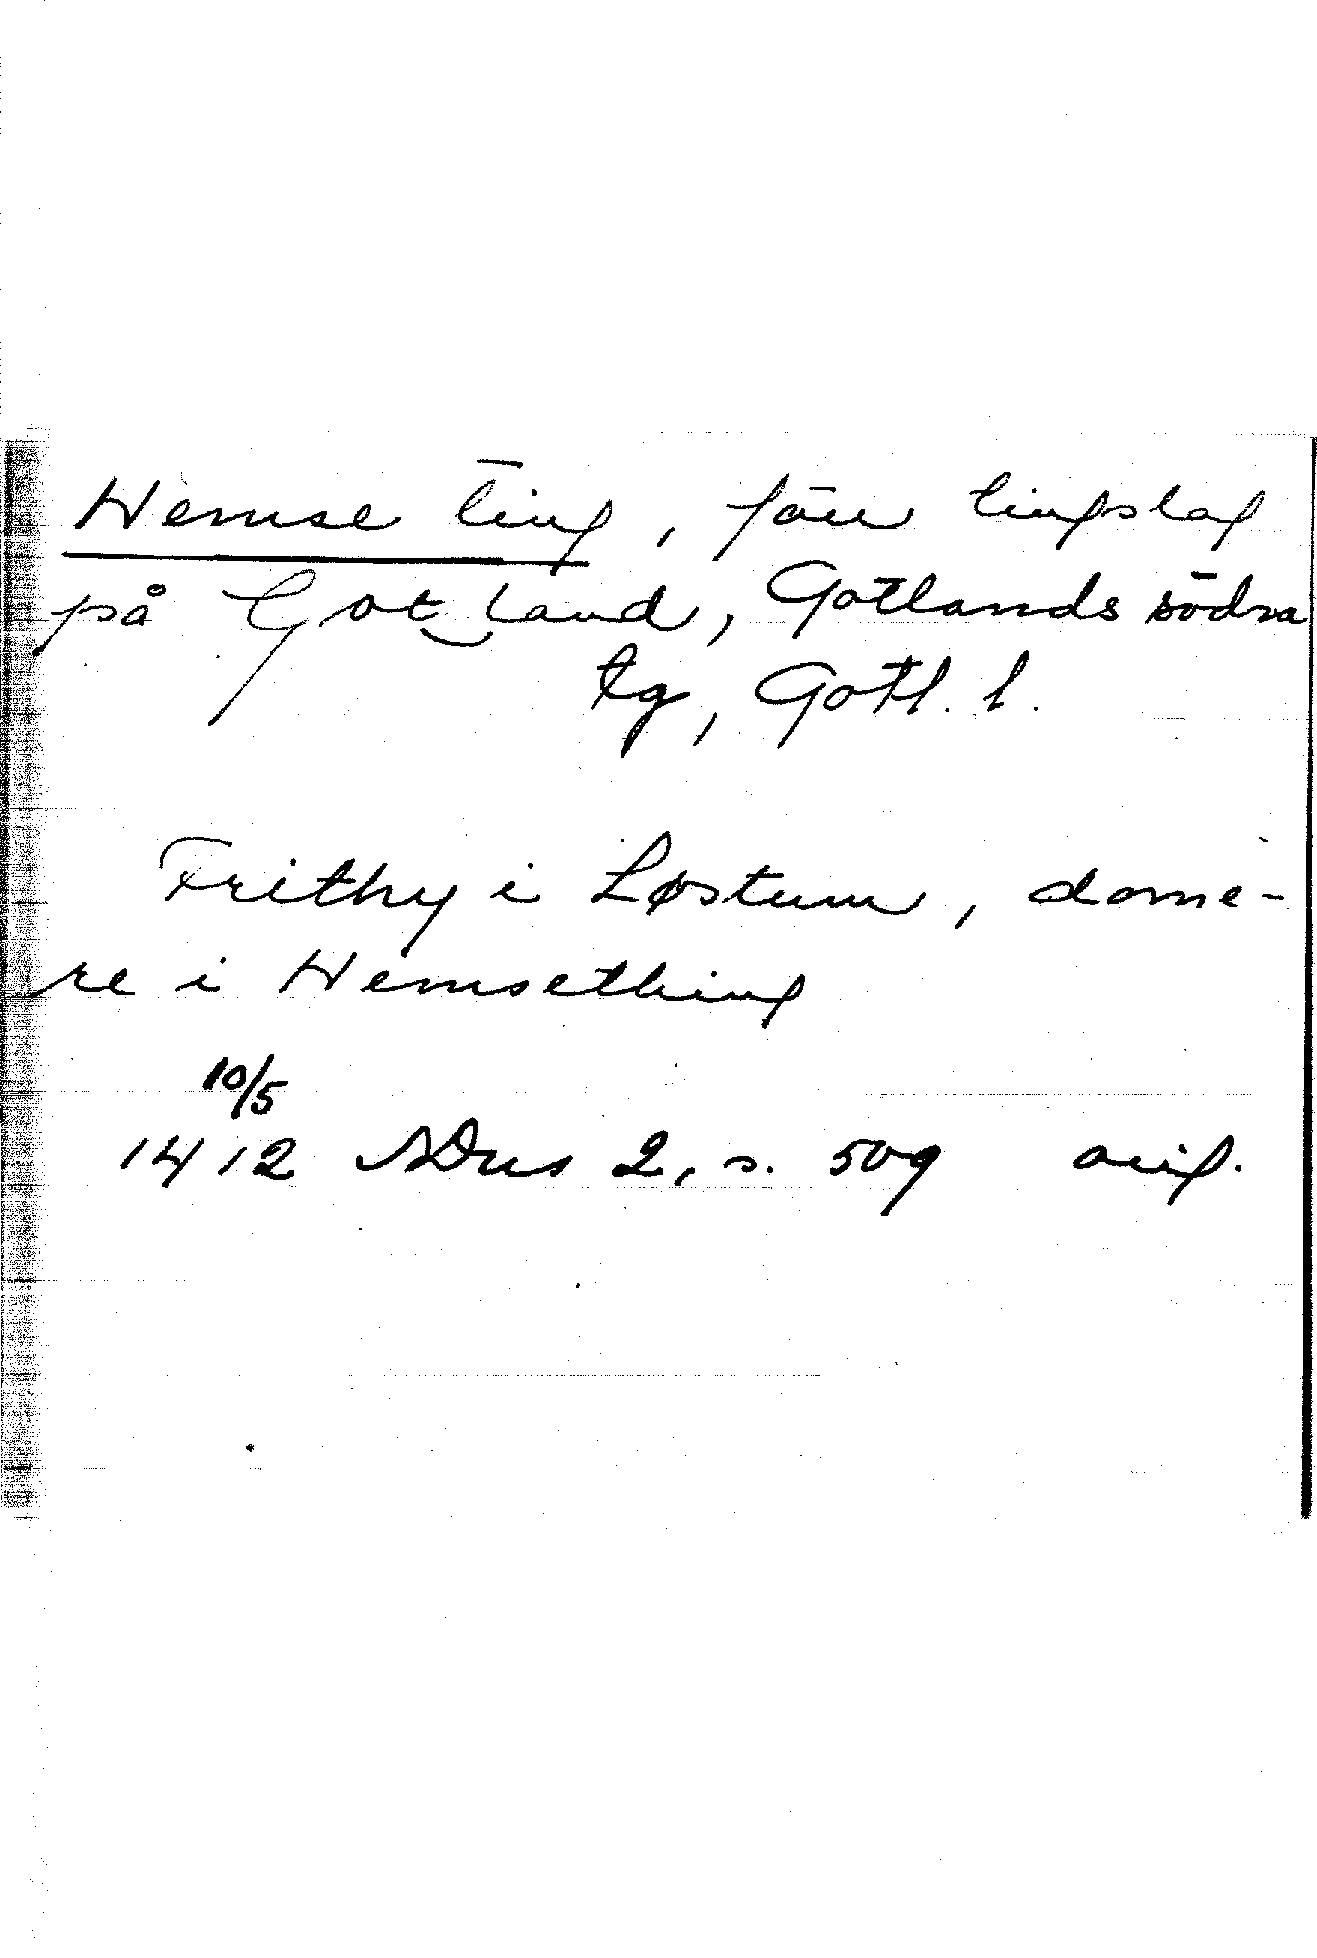 Hemse ting, förr tingslag
på Gotland, Gotlands södra
tg, Gotl. l.
Frithy i Løstum, dome-
re i Hemsething
10/5
1412 SDns 2, s. 509 orig.